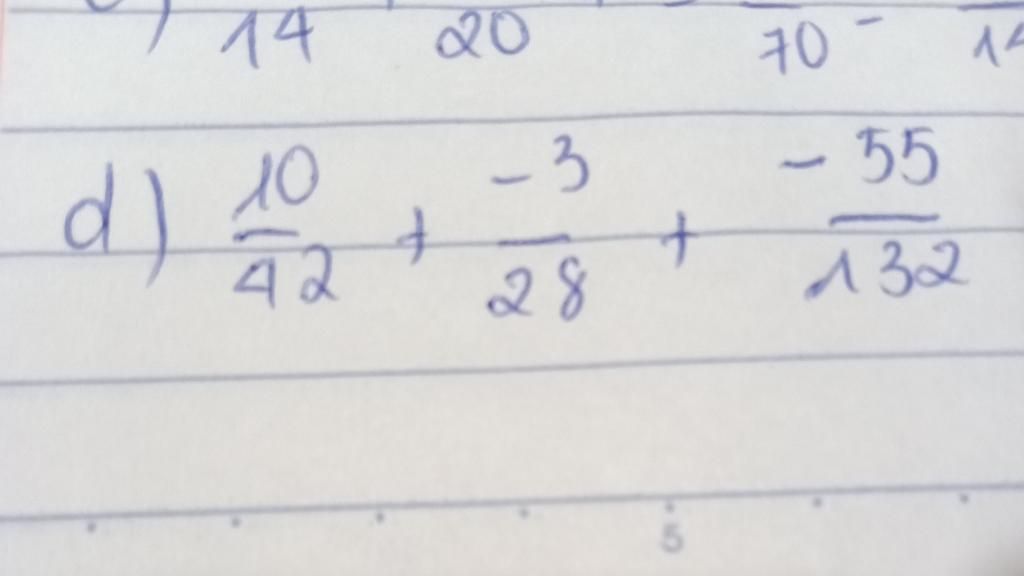 14 20 70 -
d) 10/42 + -3/28 + -55/132
5